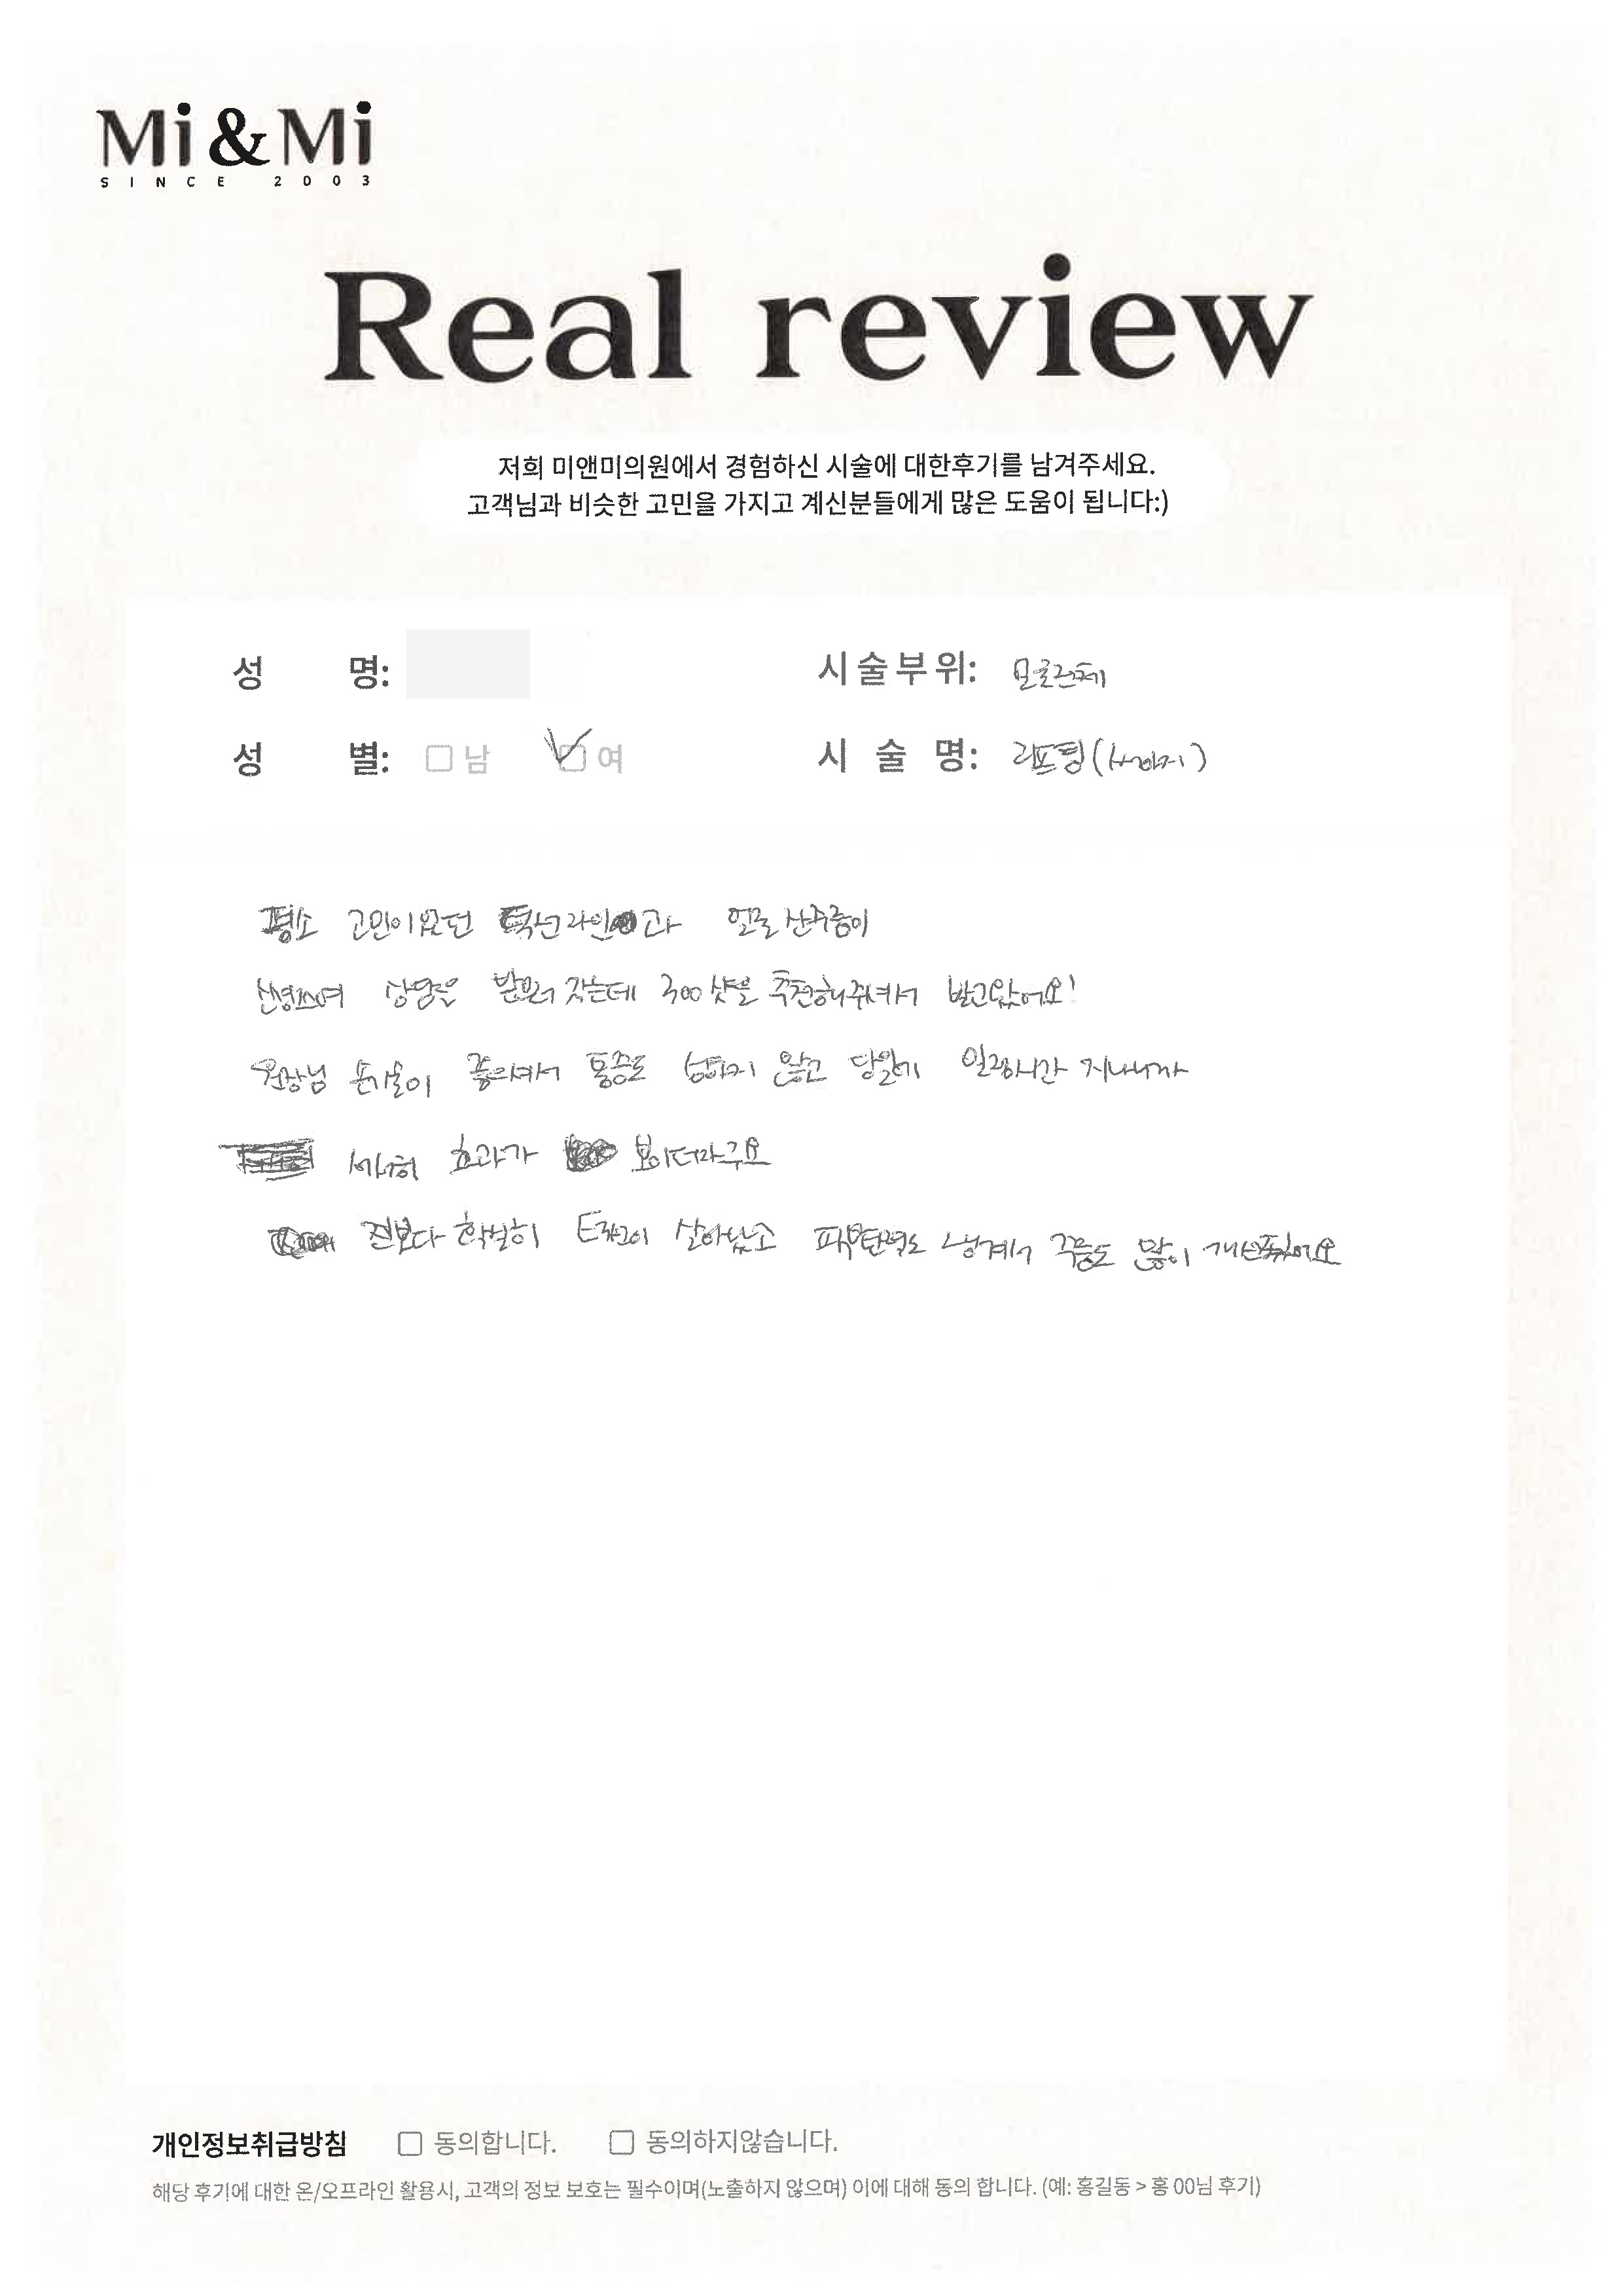 Mi&Mi
SINCE 2003
Real review
저희 미앤미의원에서 경험하신 시술에 대한후기를 남겨주세요.
고객님과 비슷한 고민을 가지고 계신분들에게 많은 도움이 됩니다:)
성 명:
시술부위: 얼굴전체
성 별: 남 여
시 술 명: 리프팅(써마지)
평소 고민이였던 턱선라인과 얼굴 잔주름이
신경쓰여 상담을 받으러 갔는데 300샷을 추천해주셔서 받고왔어요!
원장님 손기술이 좋으셔서 통증도 심하지 않고 당일에 일정시간 지나니까
서서히 효과가 보이더라구요
전보다 확실히 탄력이 살아났고 피부탄력도 생겨서 주름도 많이 개선됐어요
개인정보취급방침 동의합니다. 동의하지않습니다.
해당 후기에 대한 온/오프라인 활용시, 고객의 정보 보호는 필수이며(노출하지 않으며) 이에 대해 동의 합니다. (예: 홍길동 > 홍 00님 후기)